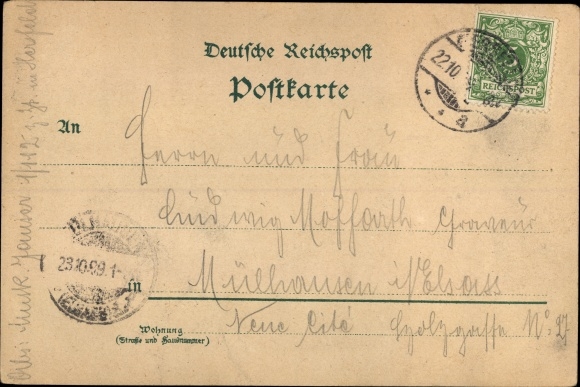 Deutsche Reichspost
Postkarte
An Herrn und Frau
Ludwig Moffarth Graveur
in Mülhausen i/Elsass
Wohnung
(Straße und Hausnummer)
Neue Cité Holzgasse No. 27
REICHSPOST
22.10
a
23.10.99.1-
Abs: Musk. Hauser 1/112